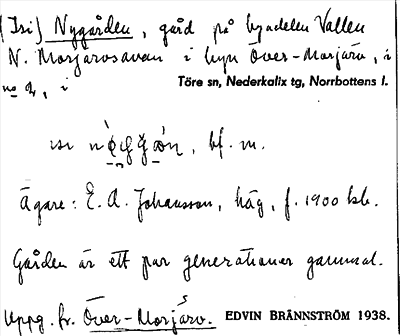 (Isi) Nygården, gård på byadelen Vallen
N. Morjärvsavan i byn Över-Morjärv, i
no 2, i
Töre sn, Nederkalix tg, Norrbottens l.
bf. m.
Ägare: E. A. Johansson, häg, f. 1900 lsb.
Gården är ett par generationer gammal.
Uppg. fr. Över-Morjärv. EDVIN BRÄNNSTRÖM 1938.